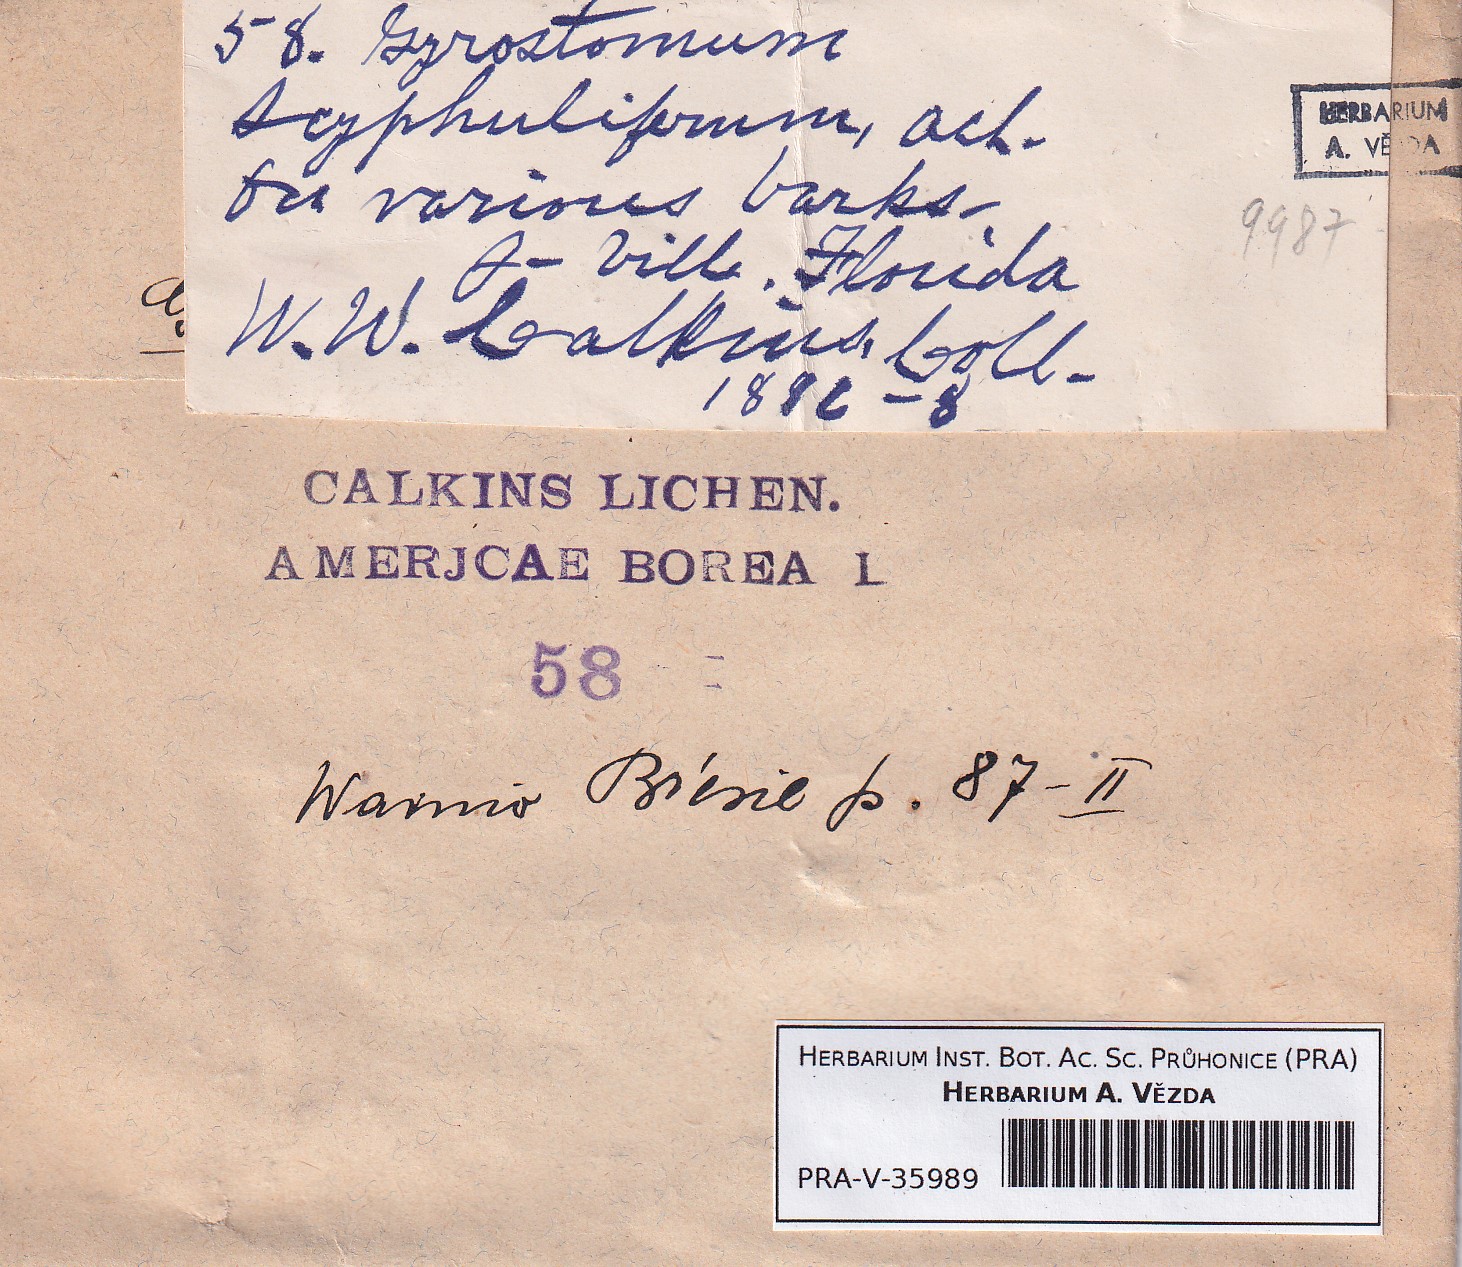 58. Gyrostomum
scyphuliferum, Ach.
On various barks-
J-Ville. Florida
W. W. Calkins, Coll-
188 -8
HERBARIUM
A. VĚZDA
9987
CALKINS LICHEN.
AMERJCAE BOREA L
58
Wainio Brésil p. 87-II
HERBARIUM INST. BOT. AC. SC. PRŮHONICE (PRA)
HERBARIUM A. VĚZDA
PRA-V-35989